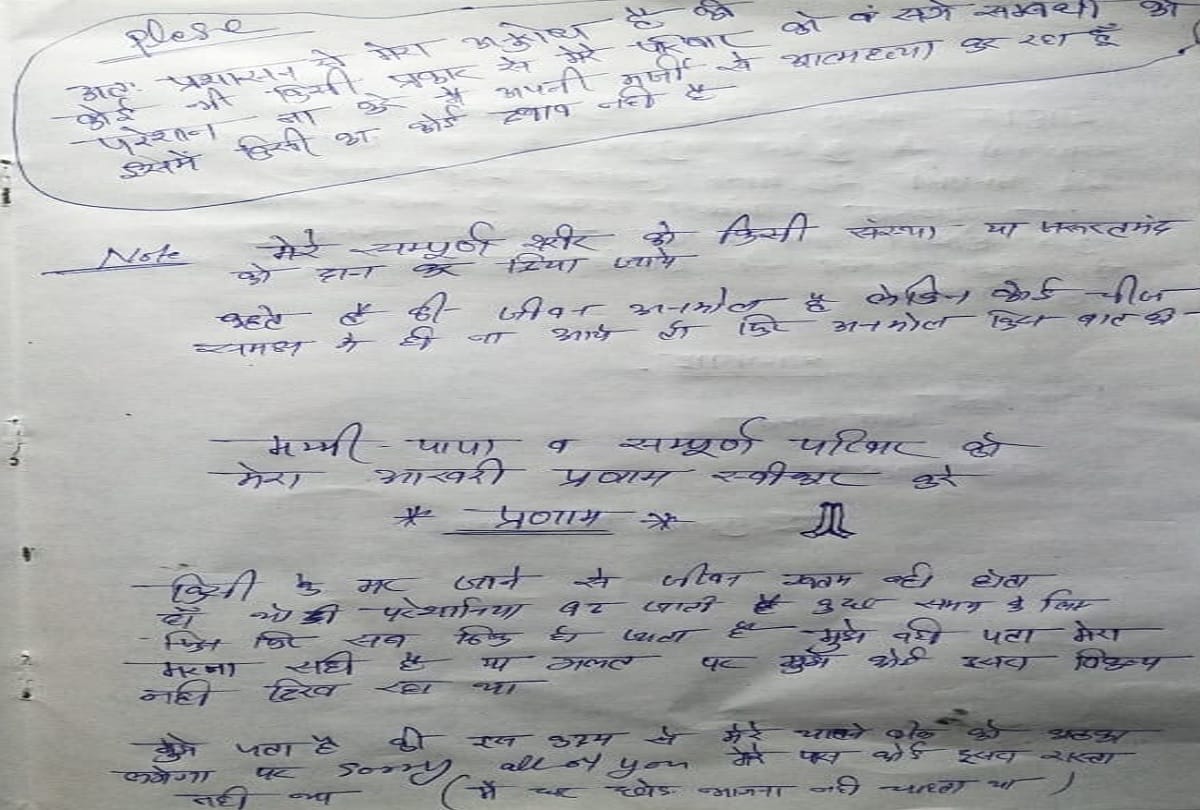 plese
अतः प्रशासन से मेरा अनुरोध है की
कोई भी किसी प्रकार से मेरे परिवार को व सगे सम्बंधी को
परेशान ना करे मैं अपनी मर्जी से आत्महत्या कर रहा हूँ
इसमें किसी का कोई दवाब नही है
Note मेरे सम्पूर्ण शरीर को किसी संस्था या जरूरतमंद
को दान कर दिया जाये
कहते है की जीवन अनमोल है लेकिन कोई चीज
समझ मे ही ना आये तो फिर अनमोल किस बात की
मम्मी - पापा व सम्पूर्ण परिवार को
मेरा आखरी प्रणाम स्वीकार करे
* प्रणाम *
किसी के मर जाने से जीवन खतम नही होता
हाँ थोडी परेशानिया बढ जाती है कुछ समय के लिए
फिर सब ठिक हो जाता है मुझे नही पता मेरा
मरना सही है या गलत पर मुझे कोई दुसरा विकल्प
नही दिख रहा था
मुझे पता है की इस कदम से मेरे चाहने वाले को झटका
लगेगा पर sorry all of you मेरे पास कोई दुसरा रास्ता
नही था (मैं घर छोड भागना नही चाहता था)